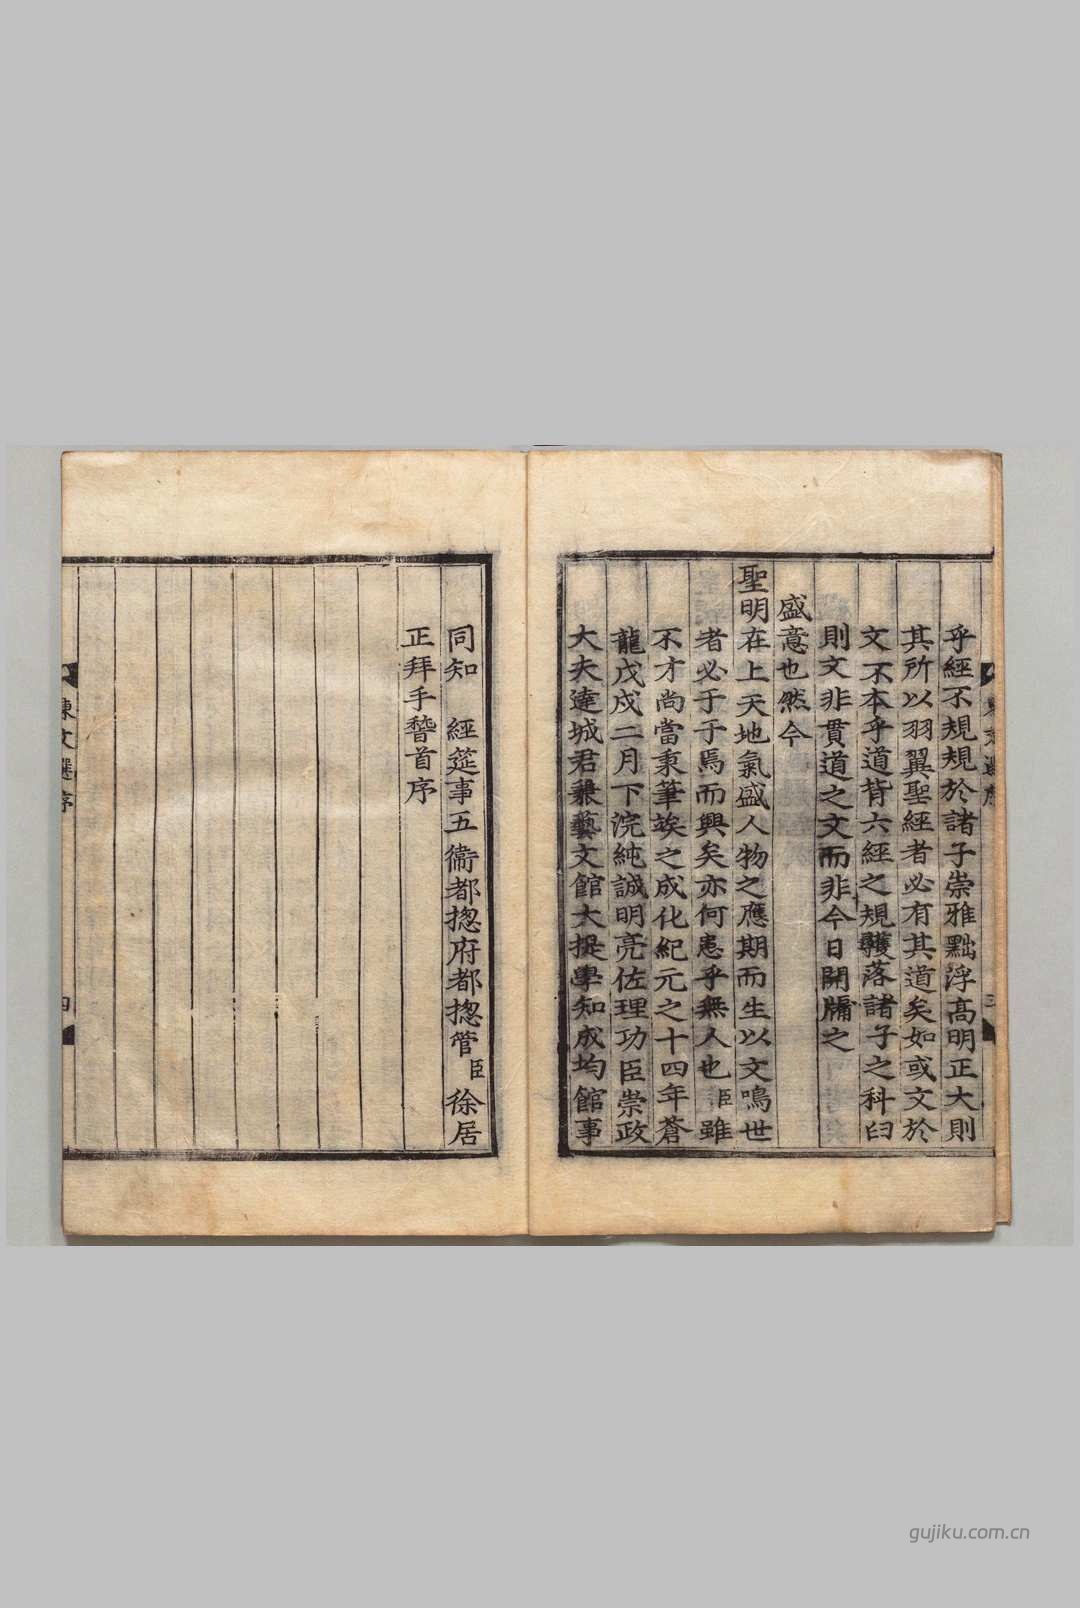 乎經不規規於諸子崇雅黜浮髙明正大則
其所以羽翼聖經者必有其道矣如或文於
文不本乎道背六經之規䂓落諸子之科臼
則文非貫道之文而非今日開牖之
盛意也然今
聖明在上天地氣盛人物之應期而生以文鳴世
者必于于焉而興矣亦何患乎無人也臣雖
不才尚當秉筆竢之成化紀元之十四年蒼
龍戊戌二月下浣純誠明亮佐理功臣崇政
大夫達城君兼藝文館大提學知成均館事
同知 經筵事五衞都揔府都揔管臣徐居
正拜手稽首序
東文選序
四
gujiku.com.cn